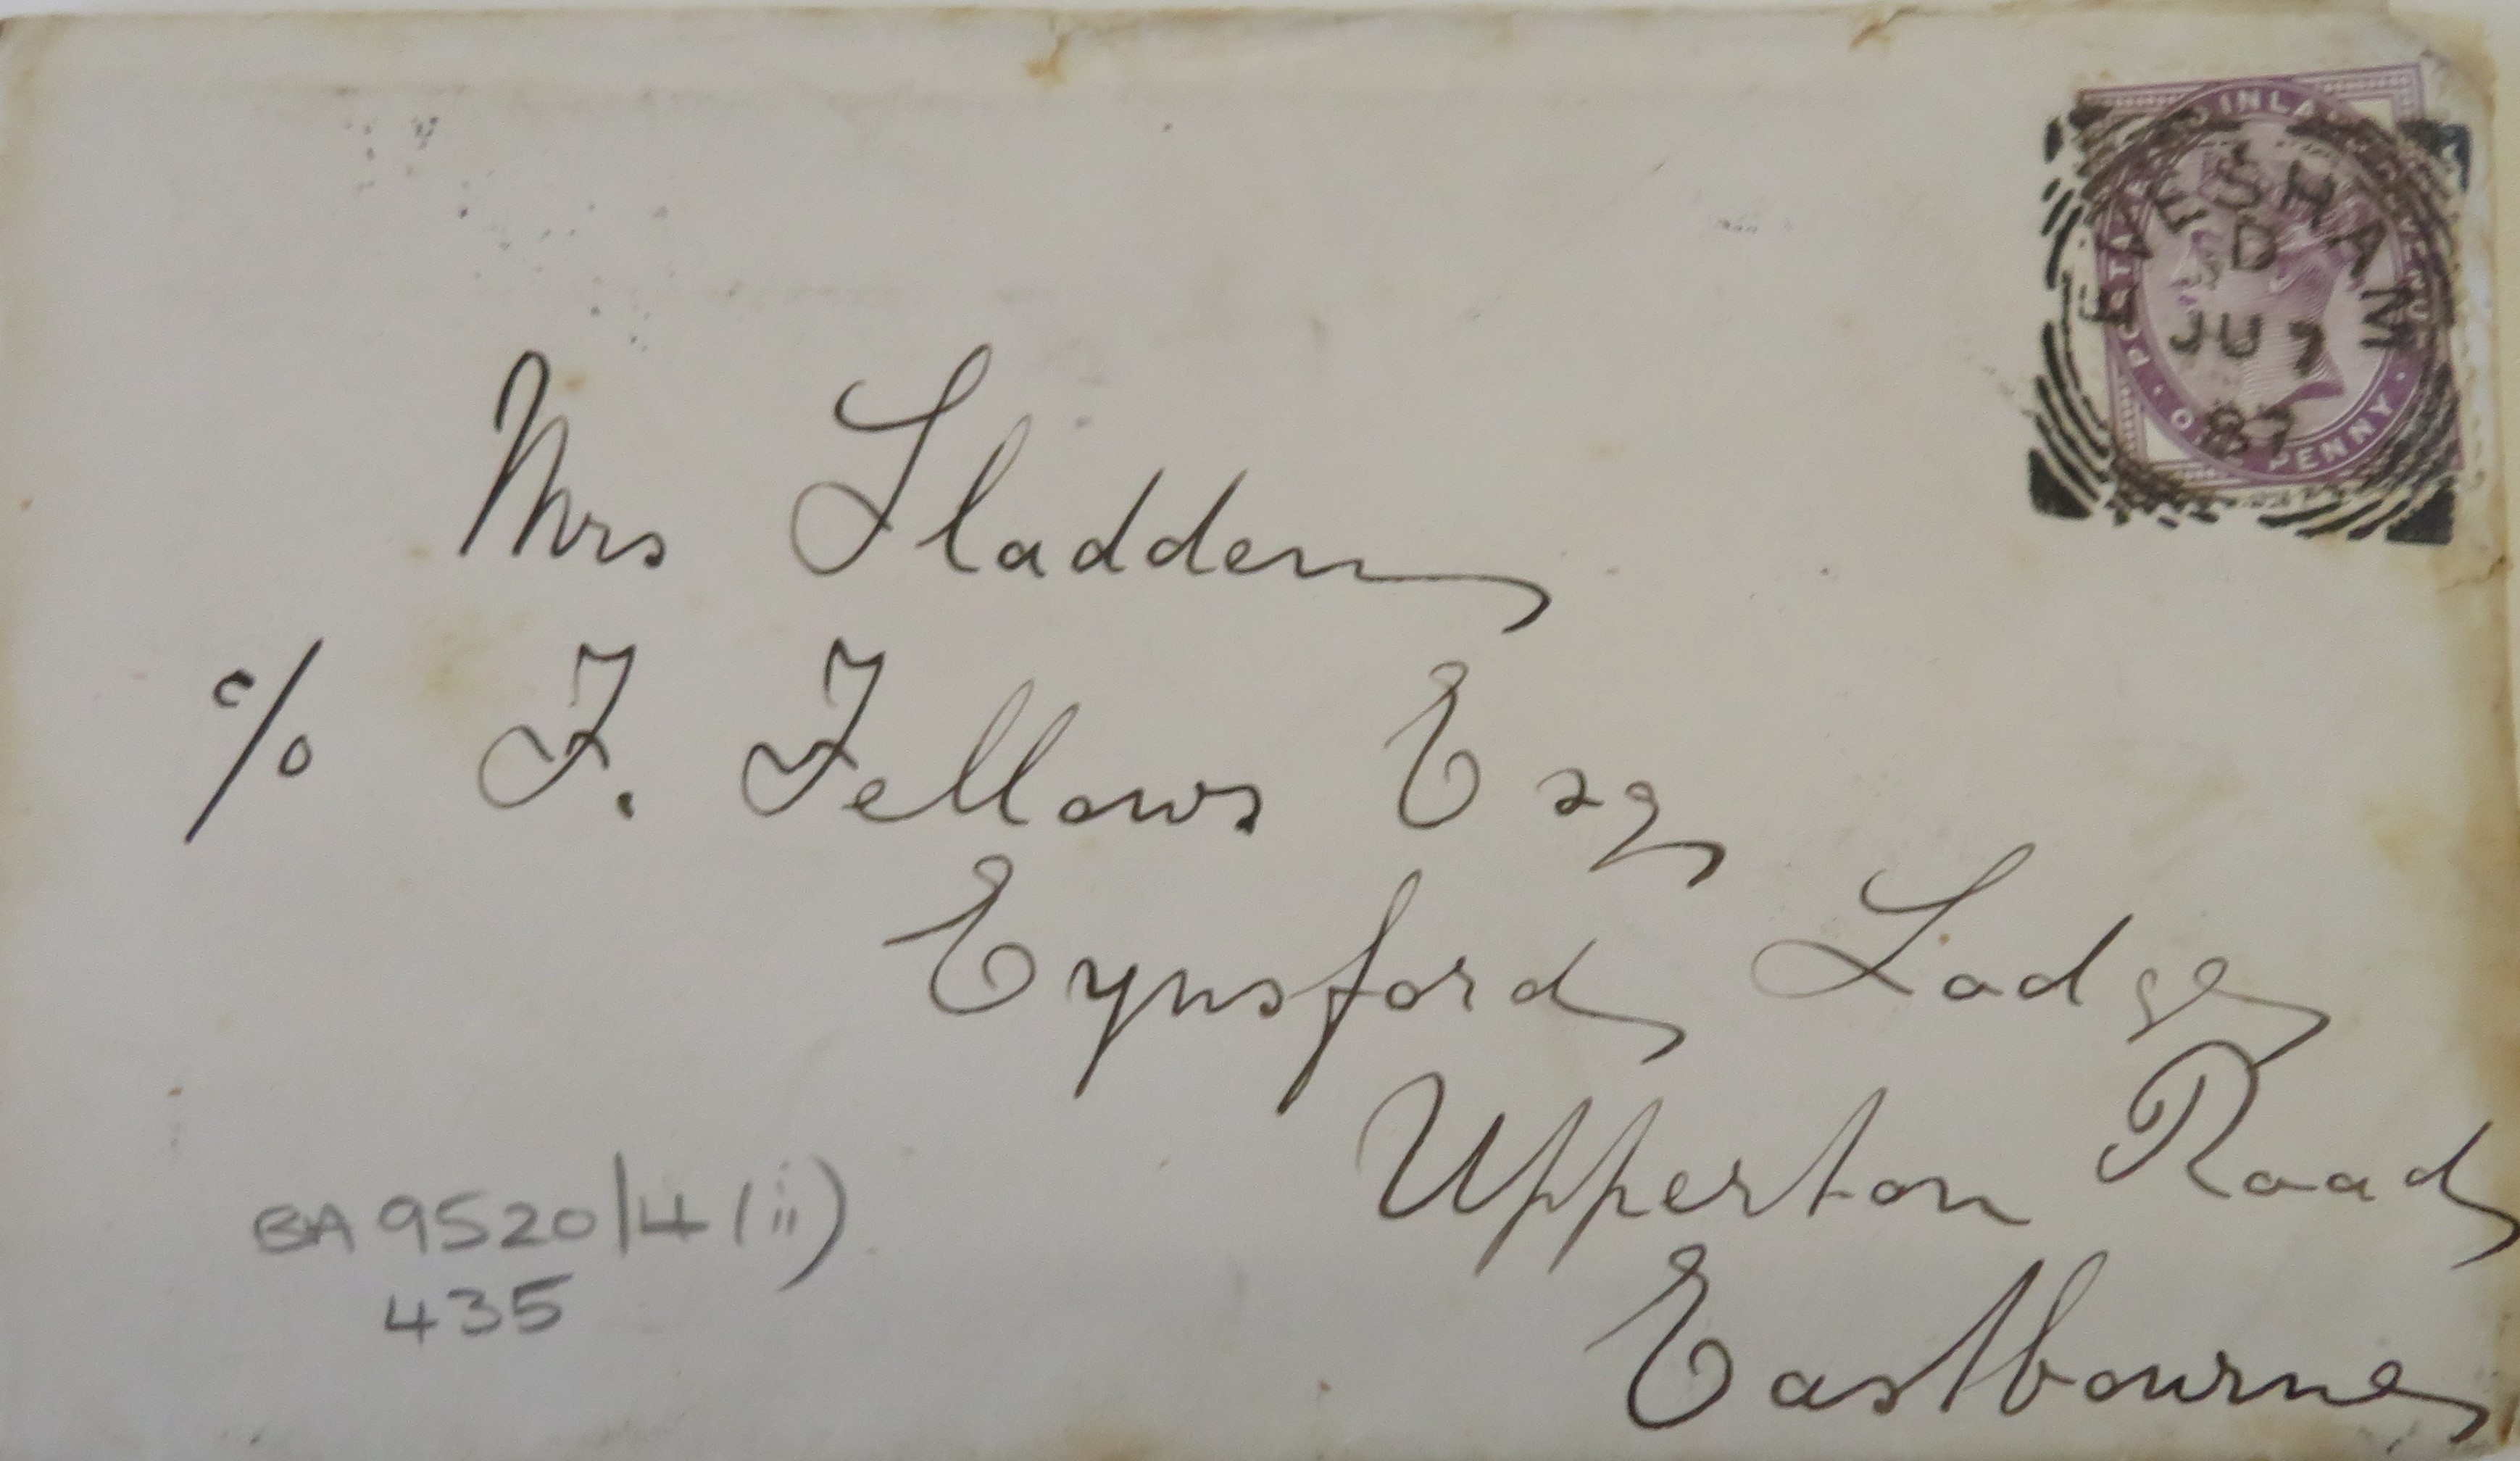 Mrs Sladden
c/o F. Fellows Esq
Eynsford Lodge
Upperton Road
Eastbourne
BA 9520/4 (ii)
435
EVESHAM
D
JU 7
87
INLA
PENNY